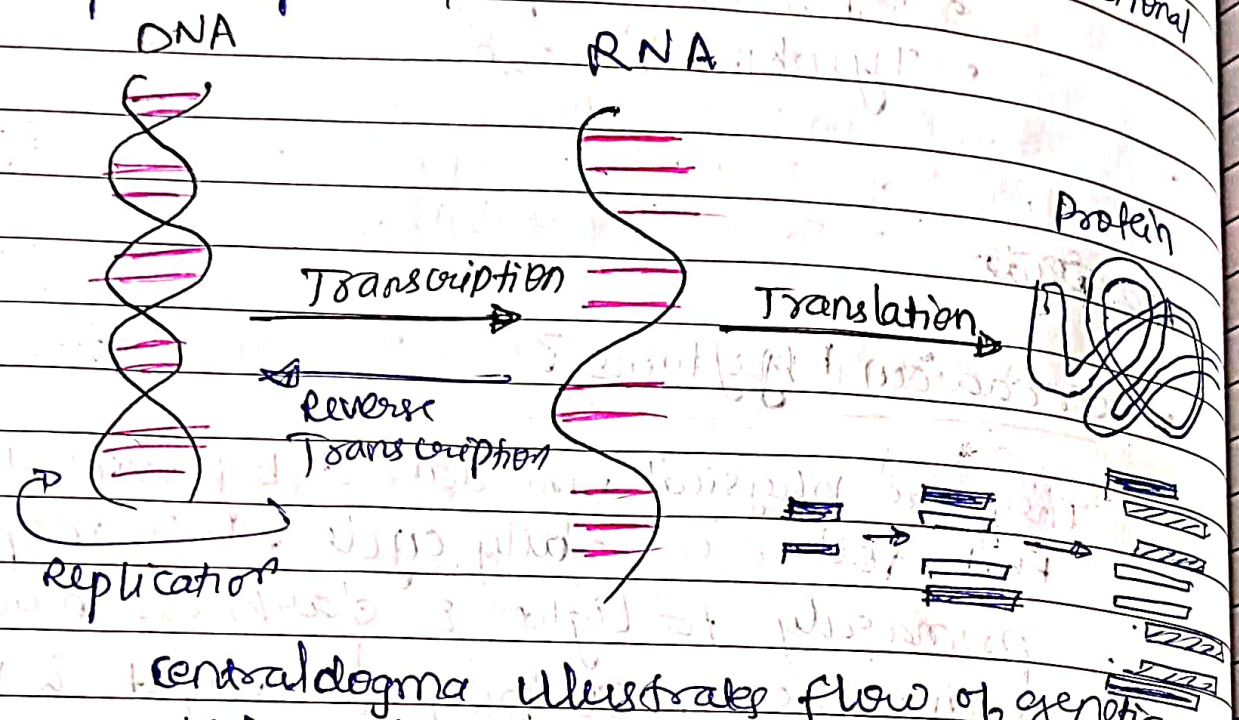 DNA
RNA
Protein
Transcription
Translation
Reverse
Transcription
Replication
central dogma illustrates flow of